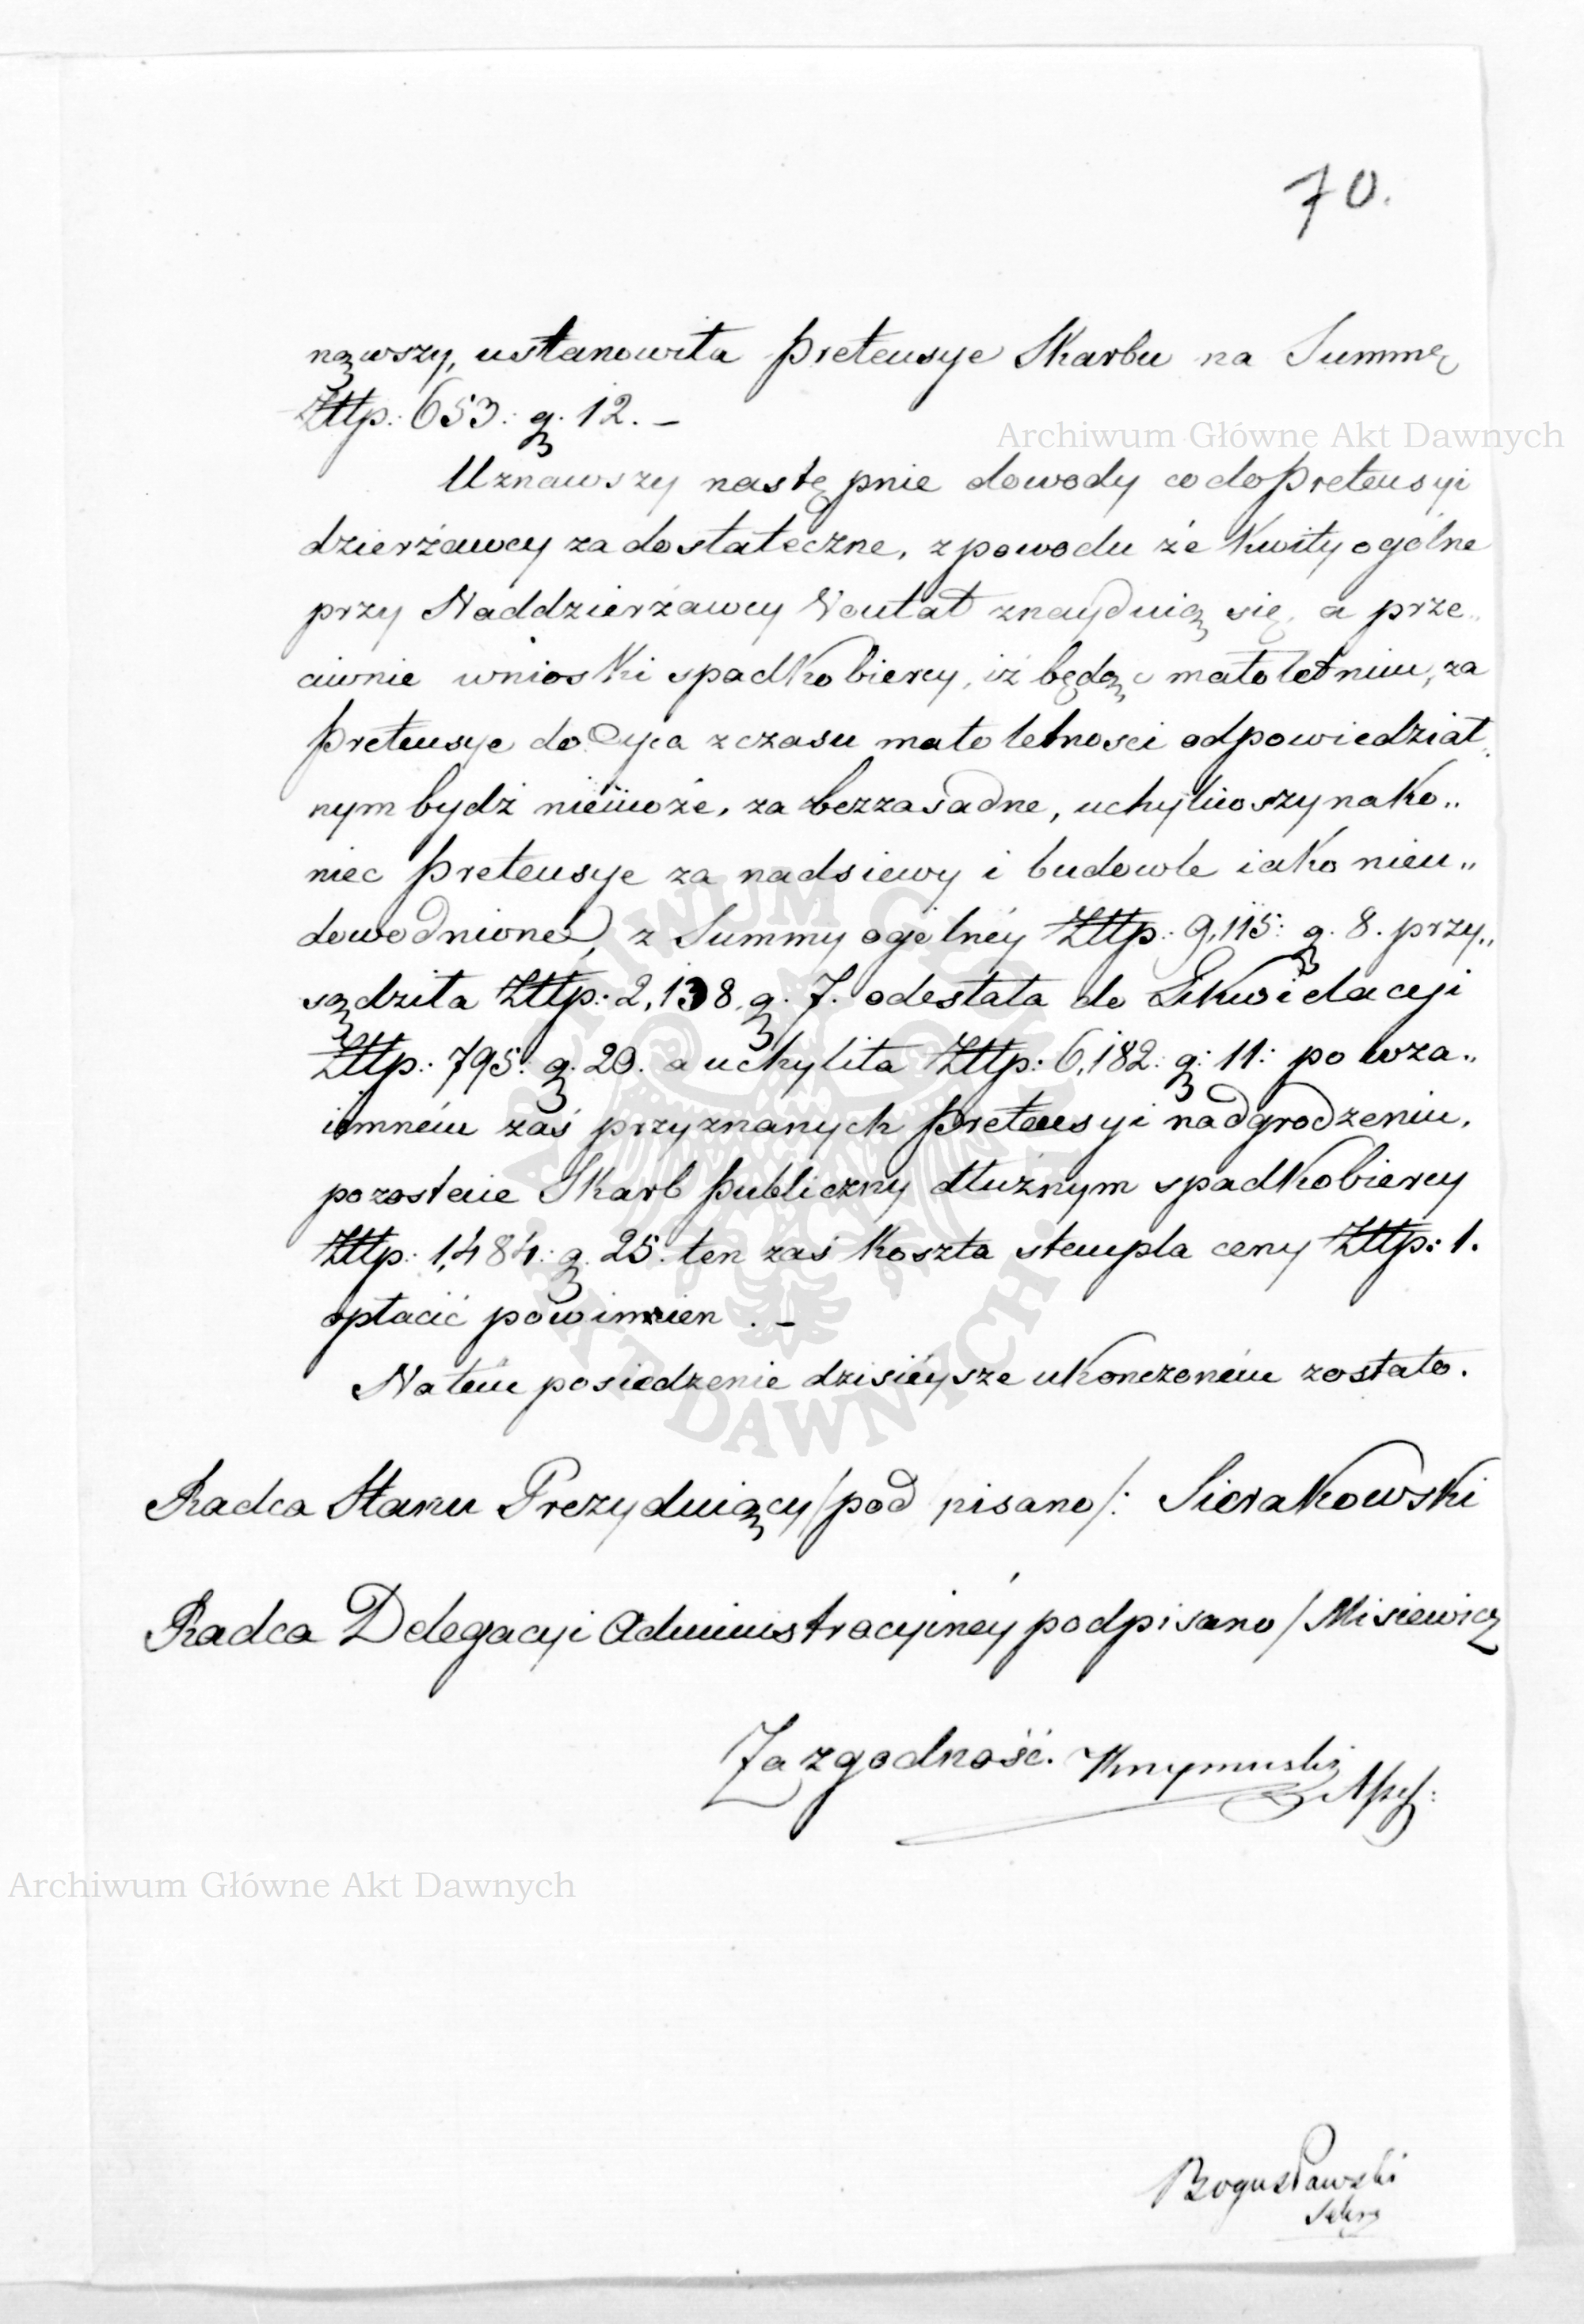 70.
nąwszy, ustanowiła pretensye Skarbu na Summę
Złłp: 653: g. 12. –
Archiwum Główne Akt Dawnych
Uznawszy następnie dowody co do pretensyi
dzierżawcy za dostateczne, z powodu że kwity ogólne
przy Naddzierżawcy znayduią się, a prze„
ciwnie wnioski spadkobiercy, iż będąc małoletnim, za
pretensye do Oyca z czasu małoletnosci odpowiedział„
nym bydź niemoże, za bezzasadne, uchyliwszy nako„
niec pretensye za nadsiewy i budowle iako nieu„
dowodnione, z Summy ogólnéy Złłp: 9,115: g. 8. przy„
sądziła Złłp: 2,138. g. 7. odesłała do Likwidacyi
Złłp: 795: g. 20. a uchyliła Złłp: 6,182: g: 11: po wza„
iemném zaś przyznanych pretensyi nadgrodzeniu,
pozostaie Skarb publiczny dłużnym spadkobiercy
Złłp: 1,484: g. 25. ten zaś koszta stempla ceny Złłp: 1.
opłacić powinien. –
Na tém posiedzenie dzisiéysze ukonczoném zostało.
Radca Stanu Prezyduiący /podpisano/: Sierakowski
Radca Delegacyi Administracyinéy podpisano/ Misiewicz
Za zgodność.
Archiwum Główne Akt Dawnych
Bogusławski
Sekre
ARCHIWUM GŁÓWNE AKT DAWNYCH